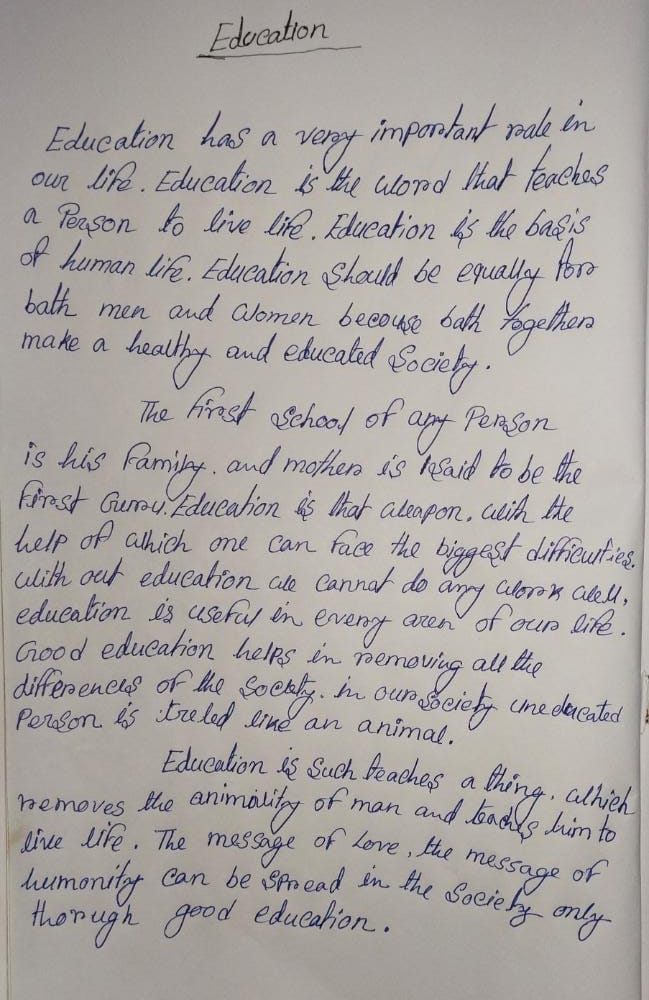 Education
Education has a very important role in
our life. Education is the word that teaches
a Person to live life. Education is the basis
of human life. Education should be equally for
bath men and women becouse bath together
make a healthy and educated Society.
The first School of any Person
is his family. and mother is said to be the
first Gurru. Education is that weapon. with the
help of which one can face the biggest difficulties.
with out education we cannot do any work well,
education is useful in every area of our life.
Good education helps in removing all the
differences of the society. in our society uneducated
Person is treled like an animal.
Education is such teaches a thing. which
removes the animility of man and teaches him to
live life. The message of Love, the message of
humonity can be spread in the Society only
thorugh good education.